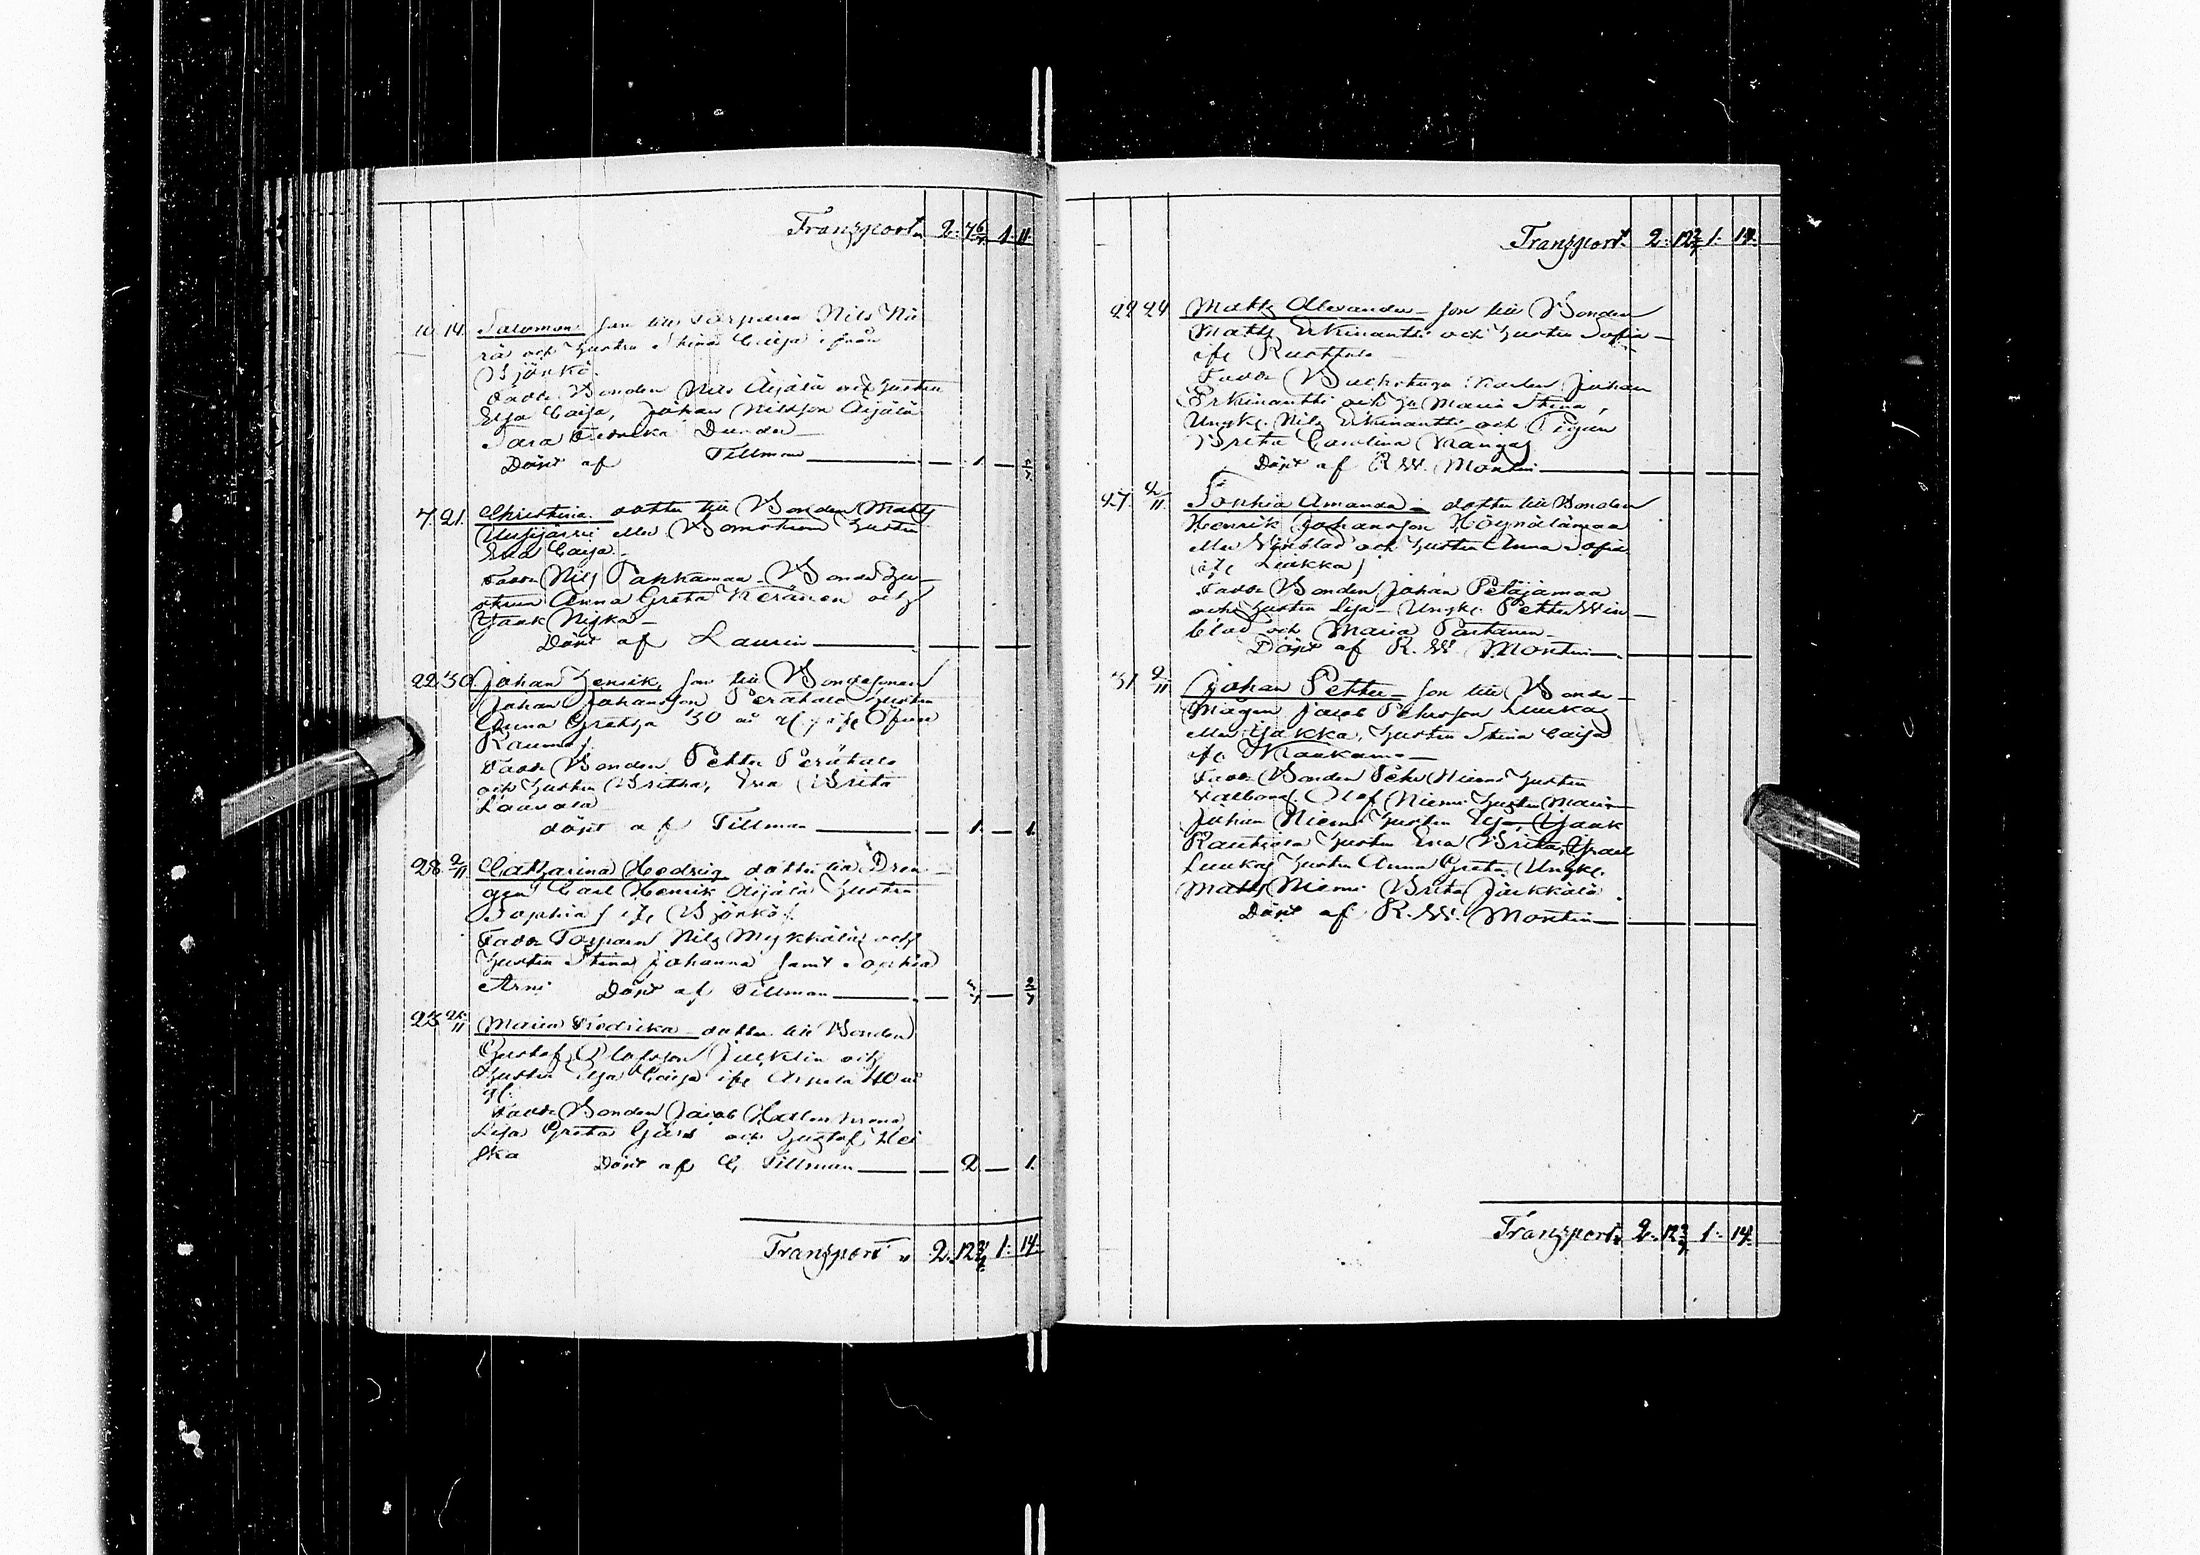 Transport 2. 7 6/7 1. 11.
10. 14. Salomon son till Torparen Nils Nii-
rä och Hustru Stina Caisa ifrån
Björkö.
Faddr. Bonden Nils Äijälä och Hustru
Elsa Caisa, Johan Nilsson Äijälä
Sara Fredrika Dunder
Döpt af Tillman — 1 —
7. 21. Christina dotter till Bonden Matts
Uusijärvi eller Hustru
Eva Caisa
Faddr Nils Pakkamaa Bonde Hu-
strun Anna Greta Keränen och
Isaak Niska
Döpt af Laurin — — —
22 30. Johan Henrik, son till Bondesonen
Johan Johansson Perähalo Hustru
Anna Gretsa 30 år ifr Öfver
Rauma
Faddr Bonden Petter Perähalo
och Hustru Britha, Eva Brita
Lauvala
döpt af Tillman — 1. — 1.
28. 2/11 Catharina Hedvig dotter till Dren-
gen Carl Henrik Äijälä Hustru
Sophia ifr Björkö
Faddr Torparen Nils Mykkälä och
Hustru Stina Johanna samt Sophia
Arni Döpt af Tillman
Maria Fredrika dotter till Bonden
Gustaf Olofsson Jucklin och
Hustru Elsa Caisa ifr Arpela 40 år
gl.
Faddr Bonden Jacob
Lisa Greta och Gustaf Hei
ska Döpt af C. Tillman — 2 — 1.
Transport „ 2. 12 1. 14.
Transport. 2. 12 1. 14.
22 24 Matts Alexander son till Bonden
Matts Erkinantti och Hustru Sofia
ifr
Faddr Backstugu Karlen Johan
Erkinantti och Hu Maria Stina,
Ungk. Nils Erkinantti och Pigan
Brita Carolina Mangs
Döpt af R. W. Montin — — —
27. 2/11 Sophia Amanda dotter till Bonden
Henrik Johansson Höynälänmaa
eller och Hustru Anna Sofia
ifr Liakka
Faddr Bonden Johan Petäjämaa
och Hustru Lisa Ungk. Petter Win-
blad och Maria Partanen
Döpt af R. W. Montin
31 2/11 Johan Petter son till Bonde-
Mågen Jacob Pehrsson Luukas
eller Jakka, Hustru Stina Caisa
ifr
Faddr Bonden Pehr Niemi Hustru
Walborg Olof Niemi Hustru Maria
Johan Niemi Hustru Isaak
Rautiola Hustru Eva Brita, Israel
Luukas Hustru Anna Greta, Ungk.
Matts Niemi Brita
Döpt af R. W. Montin
Transport 2. 12 1. 14.